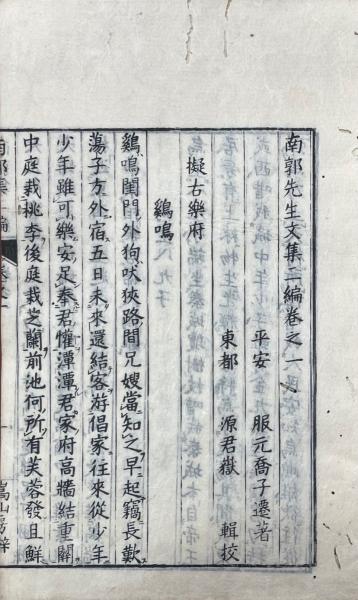 南郭先生文集二編卷之一
平安 服元喬子遷著
東都 源君嶽 輯校
擬古樂府
鷄鳴
鷄鳴閨門外狗吠狹路間兄嫂當知之早起竊長歎
蕩子方外宿五日未來還結客游倡家往來從少年
少年雖可樂安足奉君懽潭潭君家府高牆結重關
中庭栽桃李後庭栽芝蘭前池何所有芙蓉發且鮮
嵩山房梓